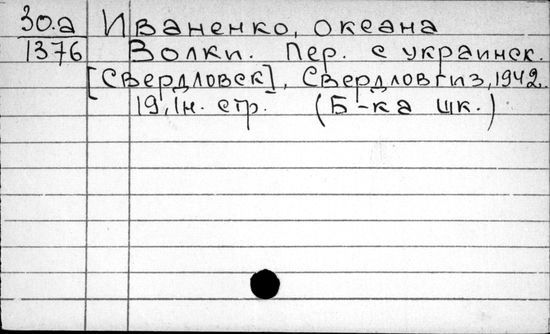 30.а Иваненко, Океана
1376 Волки. Пер. с украинск.
[Свердловск], Свердловгиз, 1942.
19, 1н. стр. (Б-ка шк.)